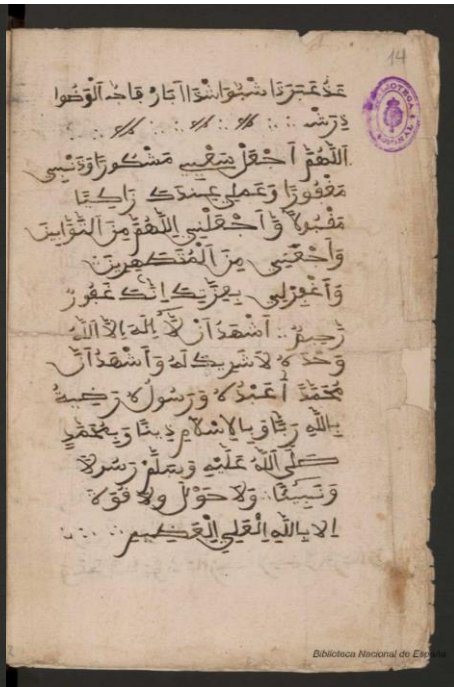 الْوَضُوا
دِرَشْ
اَللَّهُمَّ اَجْعَلْ سَعْيِي مَشْكُورًا وَذَنْبِي
مَغْفُورًا وَعَمَلِي عِندَكَ زَاكِيًا
مَقْبُولاً وَاَجْعَلْنِي اللَّهُمَّ مِنَ التَّوَّابِينَ
وَاَجْعَلْنِي مِنَ اَلْمُتَطَهِّرِينَ
وَاَغْفِرْلِي بِعِزَّتِكَ إِنَّكَ غَفُورٌ
رَّحِيمٌ أَشْهَدُ أَنْ لاَّ إِلَهَ إِلاَّ اَللَّهُ
وَحْدَهُ لاَ شَرِيكَ لَهُ وَأَشْهَدُ أَنَّ
مُحَمَّدًا عَبْدُهُ وَرَسُولُهُ رَضِيتُ
بِاللَّهِ رَبًّا وَبِالإِسْلاَمِ دِينًا وَبِمُحَمَّدٍ
صَلَّى اَللَّهُ عَلَيْهِ وَسَلَّمَ رَسُولاً
وَنَبِيئًا وَلاَ حَوْلَ وَلاَ قُوَّةَ
إِلاَّ بِاللَّهِ اِلْعَلِيِّ اِلْعَظِيمِ
14
BIBLIOTECA NACIONAL
Biblioteca Nacional de España